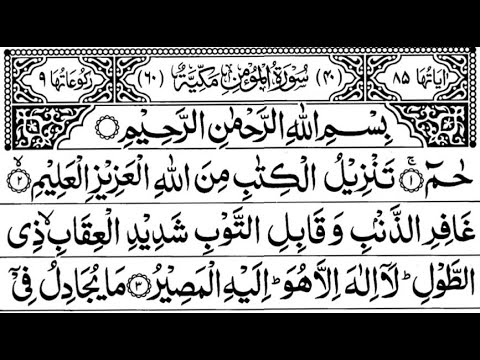 اٰیَاتُهَا ۸۵ (۴۰) سُوْرَةُ الْمُؤْمِنِ مَكِّیَّةٌ (۶۰) رُكُوْعَاتُهَا ۹
بِسْمِ اللّٰهِ الرَّحْمٰنِ الرَّحِیْمِ
حٰمٓ ۚ﴿۱﴾ تَنْزِیْلُ الْكِتٰبِ مِنَ اللّٰهِ الْعَزِیْزِ الْعَلِیْمِ ۙ﴿۲﴾
غَافِرِ الذَّنْۢبِ وَ قَابِلِ التَّوْبِ شَدِیْدِ الْعِقَابِ ۙ ذِی
الطَّوْلِ ؕ لَاۤ اِلٰهَ اِلَّا هُوَ ؕ اِلَیْهِ الْمَصِیْرُ ﴿۳﴾ مَا یُجَادِلُ فِیْۤ